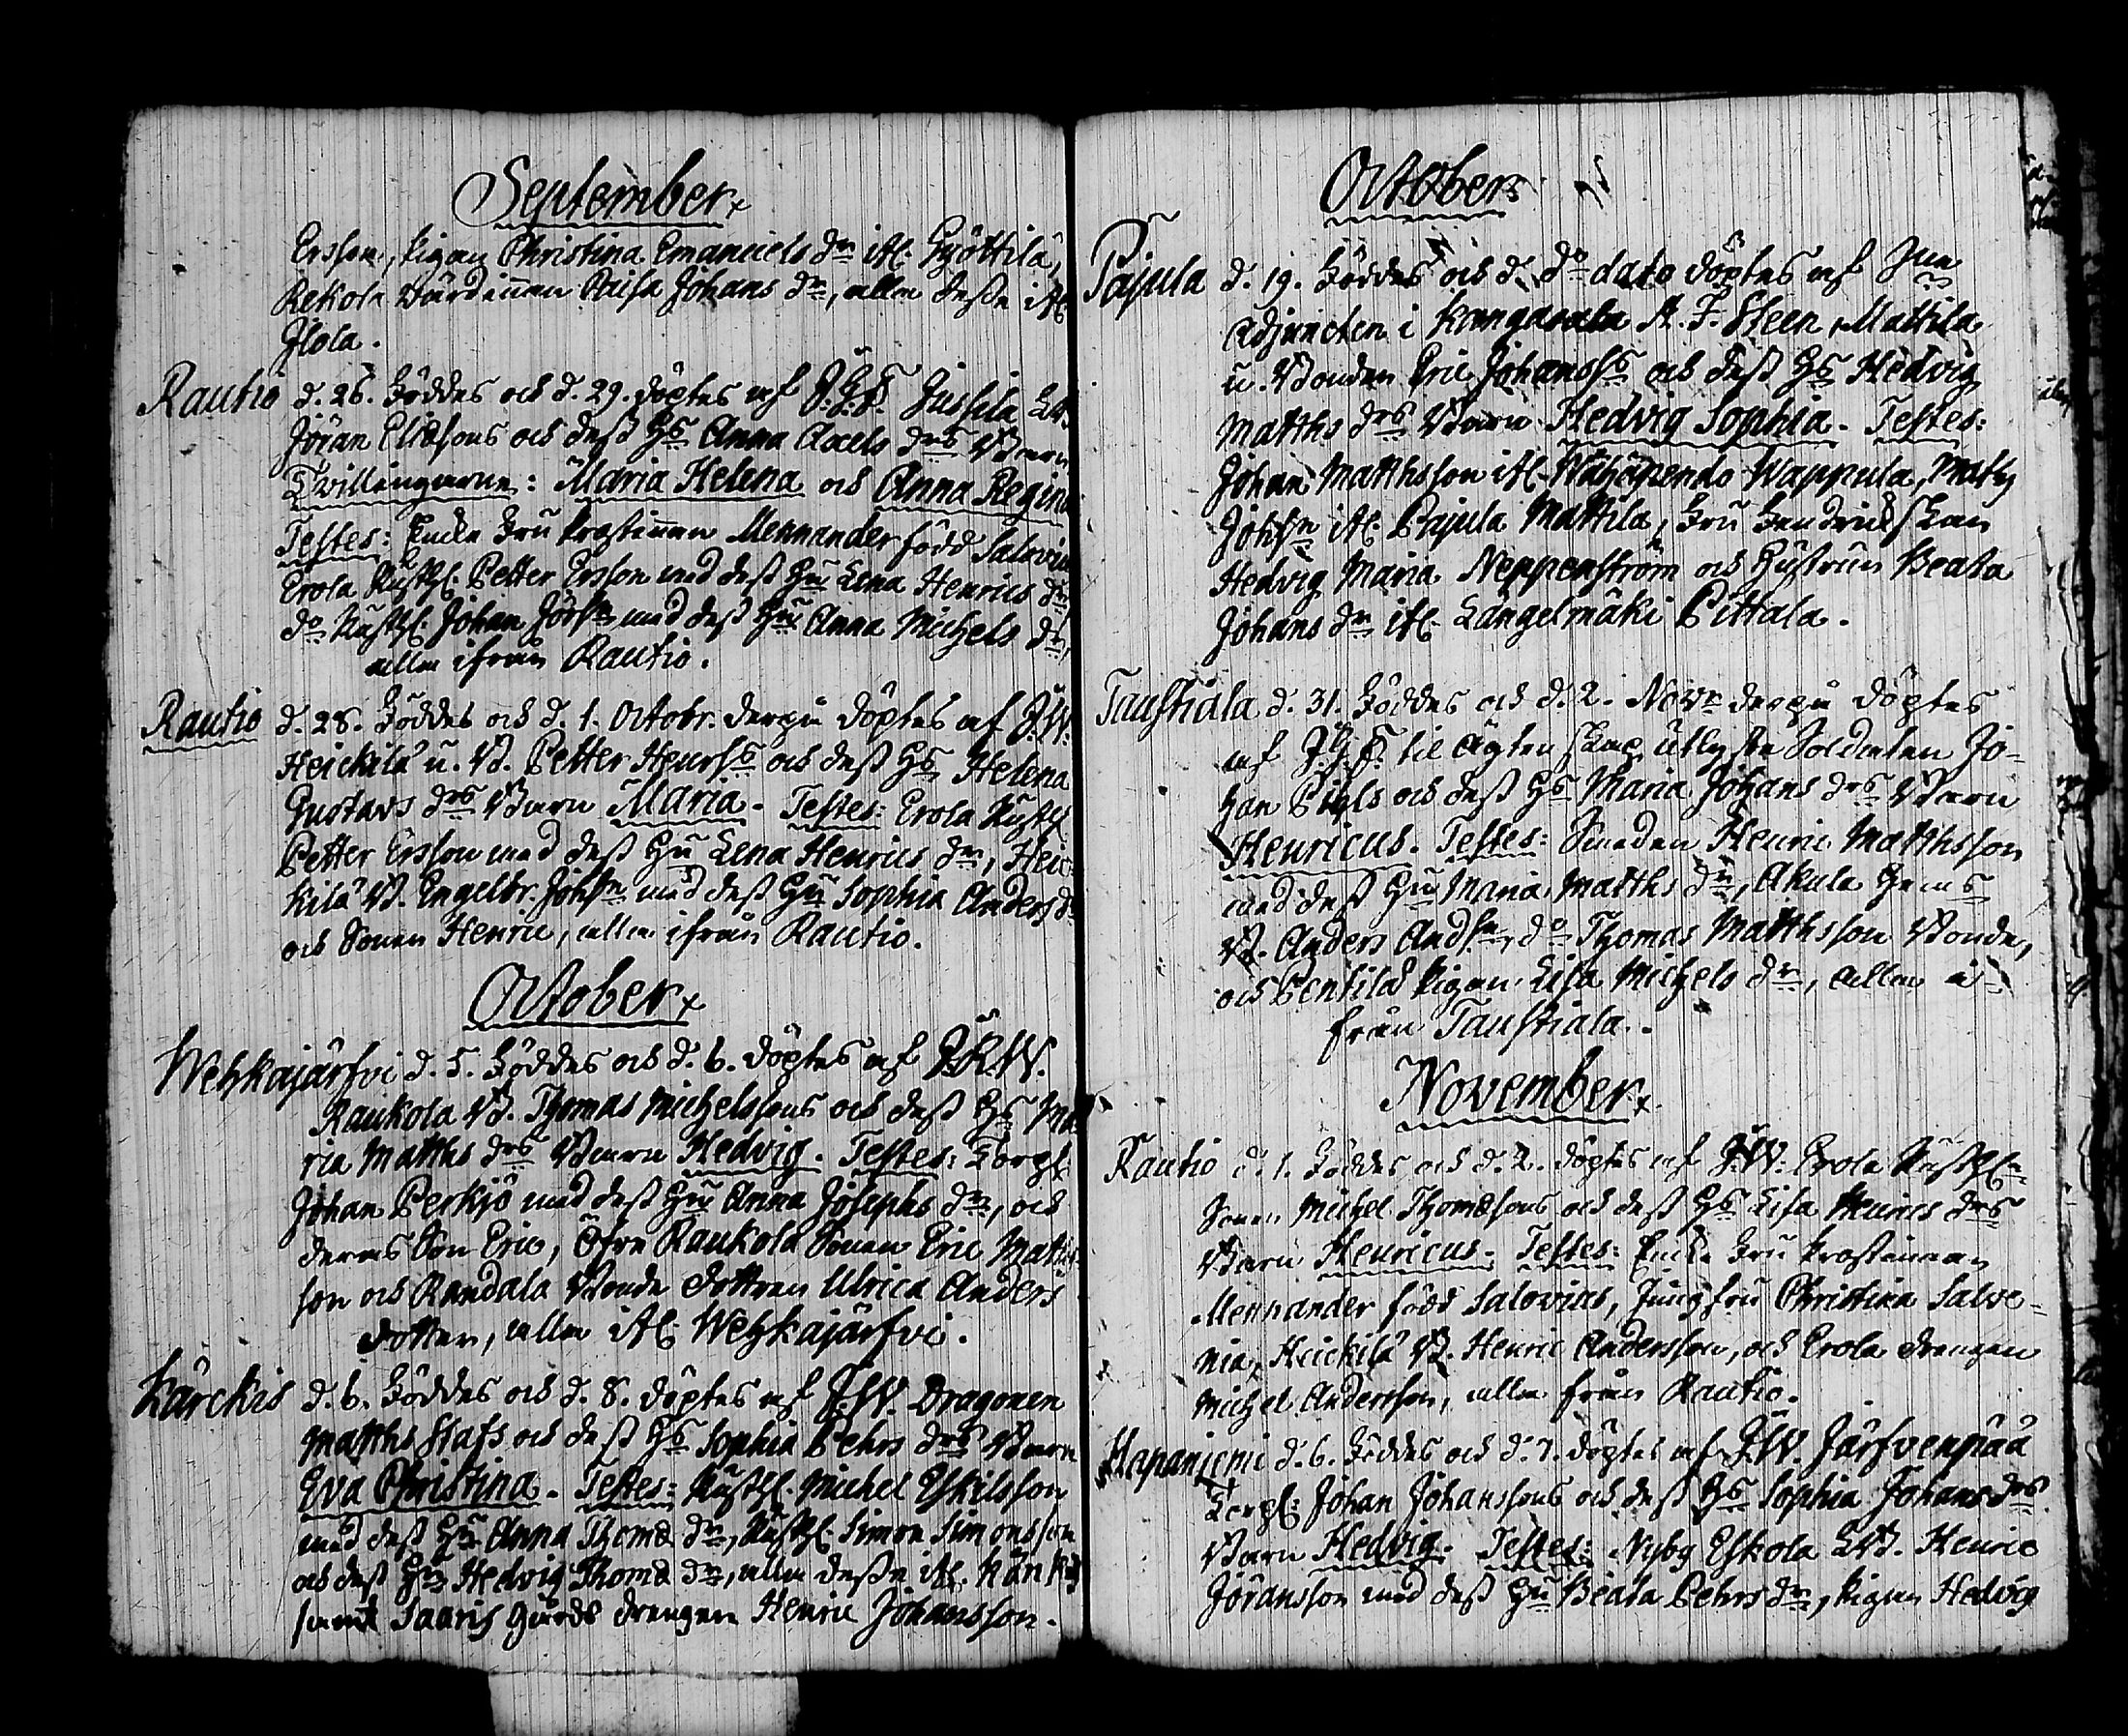 September
Ersson, pigan Christina Emanuels dr ifl. Hyöttilä,
Rekola Värdinnan Caisa Johans dr, alla desse ifl.
Ilola.
Rautio d. 26. föddes och d. 29. döptes af J.G.F. Jussila
Jöran Eliæsons och dess Hs Anna Axels drs Barn
Tvillingarne: Maria Helena och Anna Regina
Testes: Encke Fru Prostinnan Mennander född Salovius
Erola Rusth. Petter Ersson med dess Hu Lena Henrics dr,
do Rusth. Johan Jörsn med dess Hu Anna Michels dr,
alla ifrån Rautio.
Rautio d. 28. föddes och d. 1. Octobr. derpå döptes af J.W.
Heickilä u. B. Petter Henrss och dess Hs Helena
Gustavs drs Barn Maria. Testes: Erola Rusth.
Petter Ersson med dess Hu Lena Henrics dr, Heic-
kilä B. Engelbr. Johsn med dess Hu Sophia Anders dr
och Sonen Henric, alla ifrån Rautio.
October
Wehkajärfvi d. 5. föddes och d. 6. döptes af J.R.W.
Raukola B. Thomas Michelssons och dess Hs Ma
ria Matths drs Barn Hedvig. Testes: Torp.
Johan Perkjö med dess Hu Anna Josephs dr, och
deras Son Eric, Öfre Raukola Sonen Eric Matths-
son och Randala Bonde dottren Ulrica Anders
dotter, alla ifl. Wehkajärfvi.
Kärckis d. 6. föddes och d. 8. döptes af J.W. Dragonen
Matths Stafs och dess Hs Sophia Pehrs drs Barn
Eva Christina. Testes: Rusth. Michel Eskilsson
med dess Hu Anna Thomæ dr, Rusth. Simon Simonsson
och dess Hu Hedvig Thomæ dr, alla desse ifl.
samt Saaris gårds drängen Henric Johansson.
October
Pajula d. 19. föddes och d. do dato döptes af
Adjuncten i Kangasala A. F. Steen, Mattila
u. Bonden Eric Johanss och dess Hs Hedvig
Matths drs Barn Hedvig Sophia. Testes:
Johan Matthsson ifl. Wappula, Mats
Johsn ifl. Pajula Mattila, Fru
Hedvig Maria Neppenström och Hustrun Beata
Johans dr ifl. Längelmäki Pittala.
Taustiala d. 31. föddes och d. 2. Novr derpå döptes
af J.G.F. til ägtenskap utlyste Soldaten Jo-
han Pihls och dess Hs Maria Johans drs Barn
Henricus. Testes: Smeden Henric Matthsson
med dess Hu Maria Matths dr, Akula
B. Anders Andsn, do Thomas Matthsson Bonde,
och Pentilä pigan Lisa Michels dr, alla i-
från Taustiala.
November
Rautio d. 1. föddes och d. 2. döptes af J.W. Erola Rusth.
Sonen Michel Thomæsons och dess Hs Lisa Henrics drs
Barn Henricus. Testes: Encke Fru Prostinnan
Mennander född Salovius, Jungfru Christina Salve-
nia, Heickilä B. Henric Andersson, och Erola drängen
Michel Andersson, alla från Rautio.
Hapaniemi d. 6. föddes och d. 7. döptes af J.W. Järfvenpää
Torp. Johan Johanssons och dess Hs Sophia Johans drs
Barn Hedvig. Testes: Nyby Eskola Henric
Jöransson med dess Hu Beata Pehrs dr, pigan Hedvig